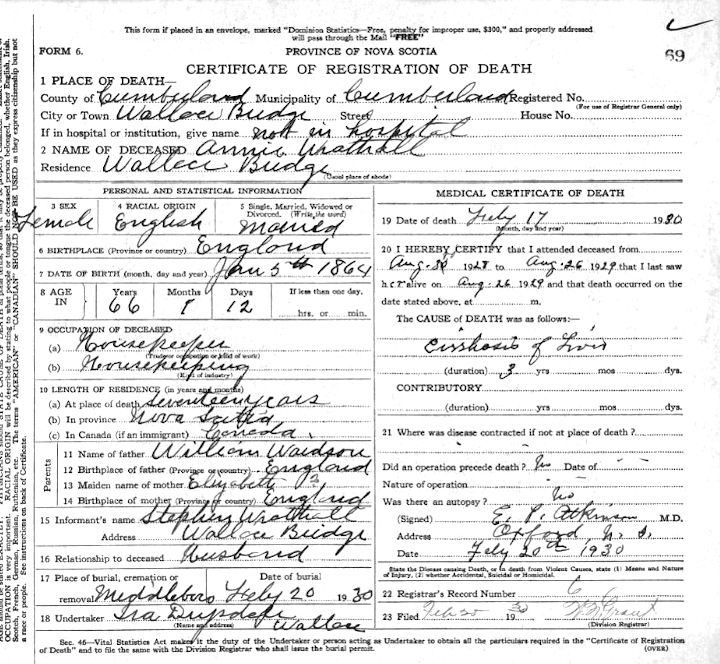 This form if placed in an envelope, marked "Dominion Statistics—Free, penalty for improper use, $300," and properly addressed
will pass through the Mail "FREE"
69
FORM 6.
PROVINCE OF NOVA SCOTIA
CERTIFICATE OF REGISTRATION OF DEATH
1 PLACE OF DEATH—
County of Cumberland Municipality of Cumberland Registered No.
(For use of Registrar General only)
City or Town Wallace Bridge Street House No.
If in hospital or institution, give name not in hospital
2 NAME OF DECEASED Annie Wrathall
Residence Wallace Bridge
(Usual place of abode)
PERSONAL AND STATISTICAL INFORMATION
3 SEX 4 RACIAL ORIGIN 5 Single, Married, Widowed or
Divorced. (Write the word)
Female English Married
6 BIRTHPLACE (Province or country) England
7 DATE OF BIRTH (month, day and year) Jan 5th 1864
8 AGE IN Years Months Days If less than one day,
66 1 12 hrs. or min.
9 OCCUPATION OF DECEASED
(a) Housekeeper
(Trade or occupation or kind of work)
(b) Housekeeping
(Kind of industry)
10 LENGTH OF RESIDENCE (in years and months)
(a) At place of death seventeen years
(b) In province Nova Scotia
(c) In Canada (if an immigrant) Canada
Parents
11 Name of father William
12 Birthplace of father (Province or country) England
13 Maiden name of mother Elizabeth ?
14 Birthplace of mother (Province or country) England
15 Informant's name Stephen Wrathall
Address Wallace Bridge
16 Relationship to deceased Husband
17 Place of burial, cremation or Date of burial
removal Middleboro Feby 20 1930
18 Undertaker Ira
(Name and address) Wallace
MEDICAL CERTIFICATE OF DEATH
19 Date of death Feby 17 1930
(Month, day and year)
20 I HEREBY CERTIFY that I attended deceased from
Aug. 30 1928 to Aug. 26 1929 that I last saw
her alive on Aug. 26 1929 and that death occurred on the
date stated above, at m.
The CAUSE of DEATH was as follows:—
Cirrhosis of Liver
(duration) 3 yrs mos dys.
CONTRIBUTORY
(duration) yrs mos dys.
21 Where was disease contracted if not at place of death?
Did an operation precede death? No Date of
Nature of operation
Was there an autopsy? No
(Signed) E. P. Atkinson M.D.
Address Oxford N. S.
Date Feby 20th 1930
State the Disease causing Death, or in death from Violent Causes, state (1) Means and Nature
of Injury, (2) whether Accidental, Suicidal or Homicidal.
22 Registrar's Record Number 6
23 Filed Feb 20 1930
(Division Registrar)
Sec. 46—Vital Statistics Act makes it the duty of the Undertaker or person acting as Undertaker to obtain all the particulars required in the "Certificate of Registration
of Death" and to file the same with the Division Registrar who shall issue the burial permit.
(OVER)